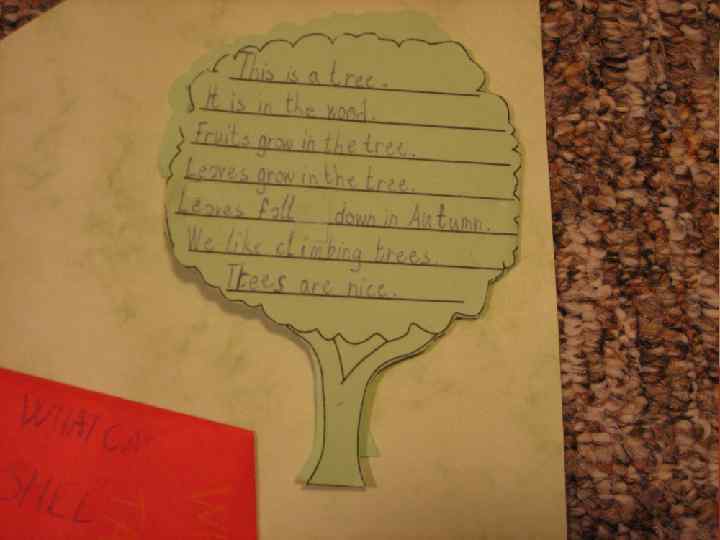 This is a tree.
It is in the wood.
Fruits grow in the tree.
Leaves grow in the tree.
Leaves fall down in Autumn.
We like climbing trees.
Trees are nice.
WHAT